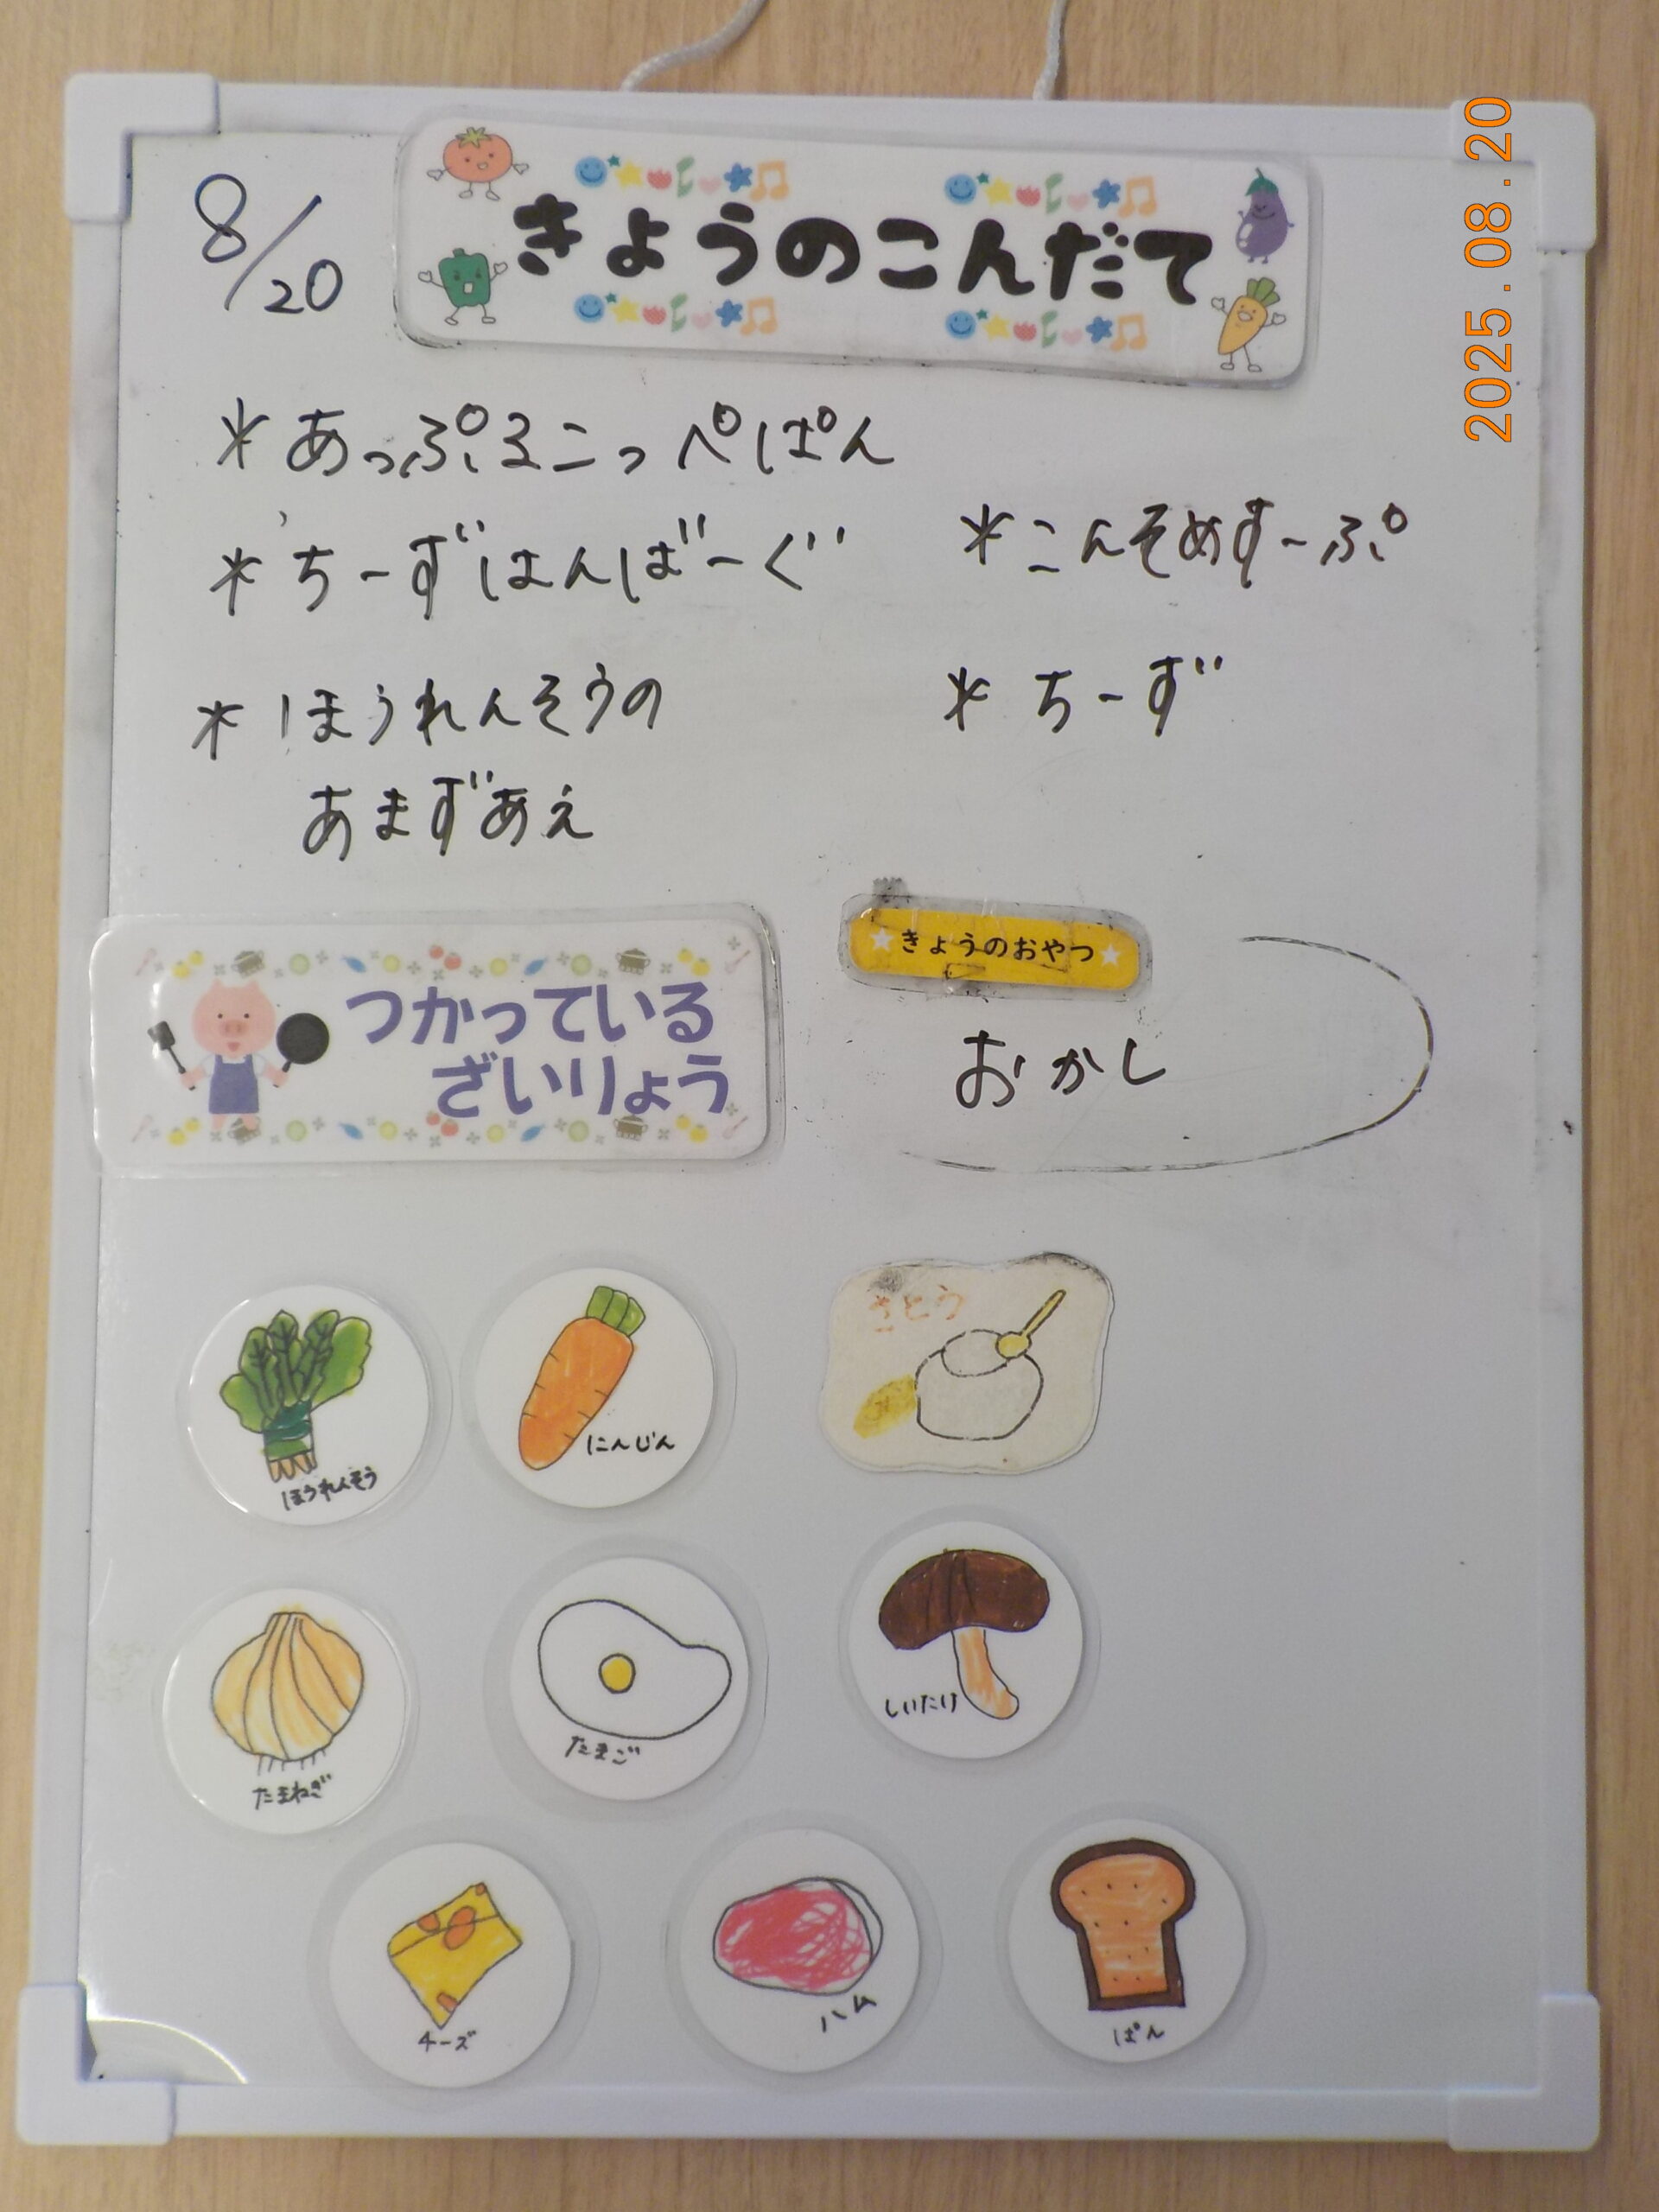 8/20
きょうのこんだて
2025.08.20
*あっぷるこっぺぱん
*ちーずはんばーぐ
*ほうれんそうの
あまずあえ
*こんそめすーぷ
*ちーず
つかっている
ざいりょう
★きょうのおやつ★
おかし
ほうれんそう
にんじん
さとう
たまねぎ
たまご
しいたけ
チーズ
ハム
ぱん